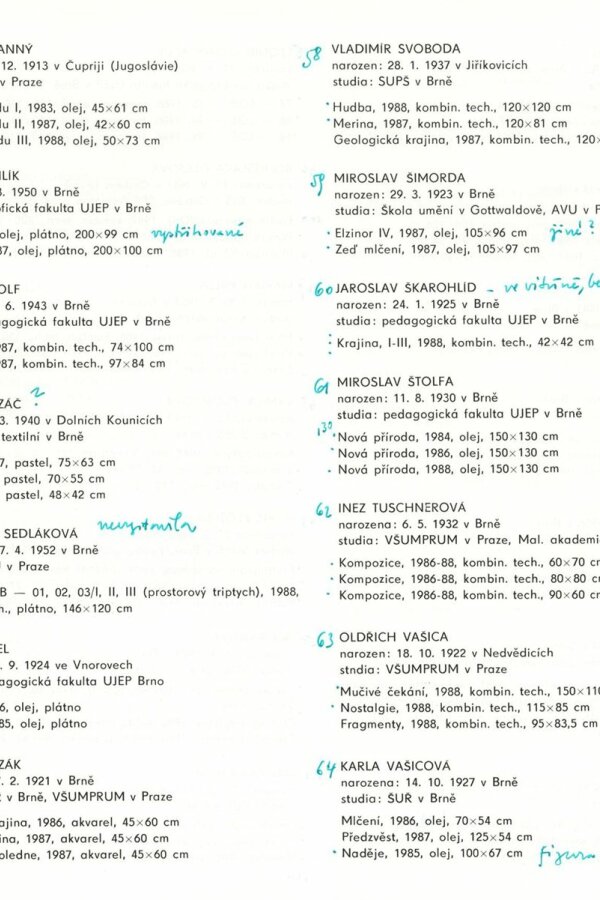 ANNÝ
12. 1913 v Čupriji (Jugoslávie)
v Praze
du I, 1983, olej, 45×61 cm
du II, 1987, olej, 42×60 cm
du III, 1988, olej, 50×73 cm
LÍK
3. 1950 v Brně
ofická fakulta UJEP v Brně
olej, plátno, 200×99 cm vystřihované
87, olej, plátno, 200×100 cm
OLF
6. 1943 v Brně
agogická fakulta UJEP v Brně
987, kombin. tech., 74×100 cm
987, kombin. tech., 97×84 cm
ZÁČ ?
3. 1940 v Dolních Kounicích
textilní v Brně
7, pastel, 75×63 cm
pastel, 70×55 cm
pastel, 48×42 cm
SEDLÁKOVÁ nevystavila
7. 4. 1952 v Brně
v Praze
B — 01, 02, 03/I, II, III (prostorový triptych), 1988,
h., plátno, 146×120 cm
EL
. 9. 1924 ve Vnorovech
agogická fakulta UJEP Brno
6, olej, plátno
85, olej, plátno
ZÁK
7. 2. 1921 v Brně
v Brně, VŠUMPRUM v Praze
ajina, 1986, akvarel, 45×60 cm
ina, 1987, akvarel, 45×60 cm
oledne, 1987, akvarel, 45×60 cm
58 VLADIMÍR SVOBODA
narozen: 28. 1. 1937 v Jiříkovicích
studia: SUPŠ v Brně
Hudba, 1988, kombin. tech., 120×120 cm
Merina, 1987, kombin. tech., 120×81 cm
Geologická krajina, 1987, kombin. tech., 120×
59 MIROSLAV ŠIMORDA
narozen: 29. 3. 1923 v Brně
studia: Škola umění v Gottwaldově, AVU v P
Elzinor IV, 1987, olej, 105×96 cm jiné?
Zeď mlčení, 1987, olej, 105×97 cm
60 JAROSLAV ŠKAROHLÍD – ve vitríně, be
narozen: 24. 1. 1925 v Brně
studia: pedagogická fakulta UJEP v Brně
Krajina, I-III, 1988, kombin. tech., 42×42 cm
61 MIROSLAV ŠTOLFA
narozen: 11. 8. 1930 v Brně
studia: pedagogická fakulta UJEP v Brně
130 Nová příroda, 1984, olej, 150×130 cm
Nová příroda, 1986, olej, 150×130 cm
Nová příroda, 1988, olej, 150×130 cm
62 INEZ TUSCHNEROVÁ
narozena: 6. 5. 1932 v Brně
studia: VŠUMPRUM v Praze, Mal. akademi
Kompozice, 1986-88, kombin. tech., 60×70 c
Kompozice, 1986-88, kombin. tech., 80×80 c
Kompozice, 1986-88, kombin. tech., 90×60 c
63 OLDŘICH VAŠICA
narozen: 18. 10. 1922 v Nedvědicích
stndia: VŠUMPRUM v Praze
Mučivé čekání, 1988, kombin. tech., 150×110
Nostalgie, 1988, kombin. tech., 115×85 cm
Fragmenty, 1988, kombin. tech., 95×83,5 cm
64 KARLA VAŠICOVÁ
narozena: 14. 10. 1927 v Brně
studia: ŠUŘ v Brně
Mlčení, 1986, olej, 70×54 cm
Předzvěst, 1987, olej, 125×54 cm
Naděje, 1985, olej, 100×67 cm figura